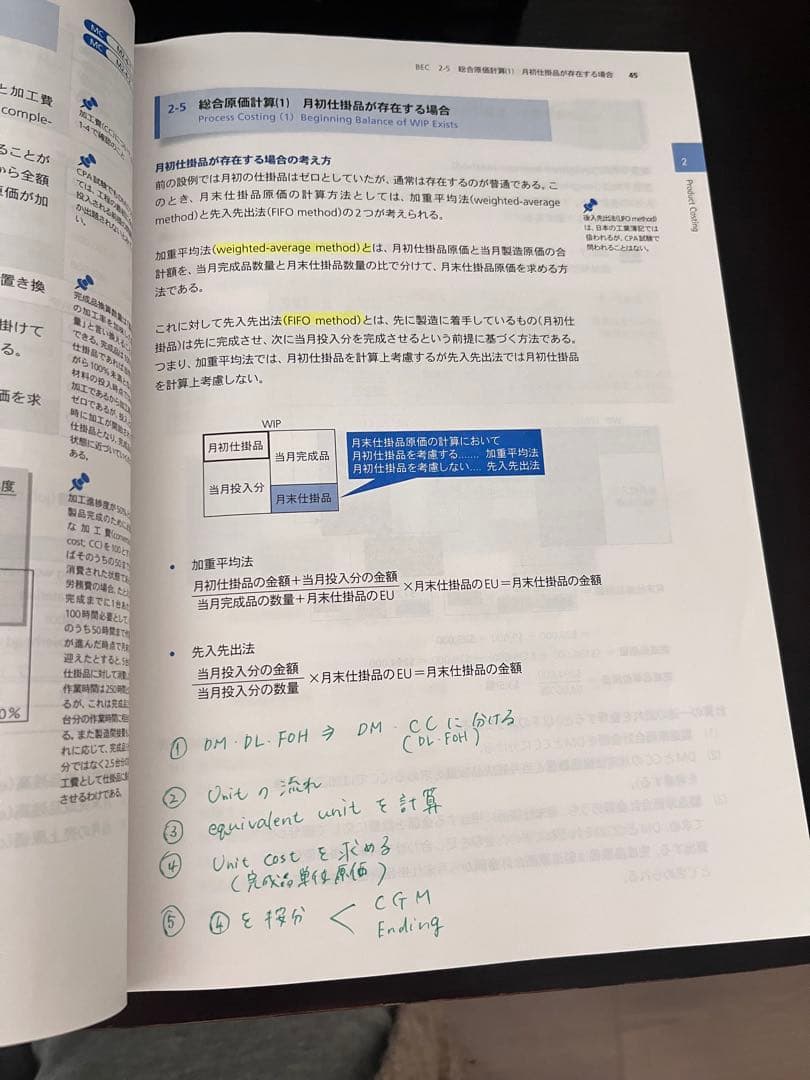 と加工費
comple-
ることが
ら全額
価が加
置き換
掛けて
る。
価を求
度
0%
MC
MC
1-4で確認のこと
い。
ある。
加工進捗度が50%
製品完成のために
な加工費
cost; CC)を100と
ばそのうちの50ま
消費された状態で
労務費の場合、
完成までに1台あ
100時間必要として
のうち50時間まで
が進んだ時点で月
迎えたとすると、
仕掛品に対して消
作業時間は250時間
るが、これは完成品
台分の作業時間に
る。また製造間接費
れに応じて、完成品
分ではなく2.5台分
工費として仕掛品に
させるわけである。
BEC 2-5 総合原価計算(1) 月初仕掛品が存在する場合 45
2-5 総合原価計算(1) 月初仕掛品が存在する場合
Process Costing (1) Beginning Balance of WIP Exists
月初仕掛品が存在する場合の考え方
前の設例では月初の仕掛品はゼロとしていたが、通常は存在するのが普通である。こ
のとき、月末仕掛品原価の計算方法としては、加重平均法(weighted-average
method)と先入先出法(FIFO method)の2つが考えられる。
加重平均法(weighted-average method)とは、月初仕掛品原価と当月製造原価の合
計額を、当月完成品数量と月末仕掛品数量の比で分けて、月末仕掛品原価を求める方
法である。
これに対して先入先出法(FIFO method)とは、先に製造に着手しているもの(月初仕
掛品)は先に完成させ、次に当月投入分を完成させるという前提に基づく方法である。
つまり、加重平均法では、月初仕掛品を計算上考慮するが先入先出法では月初仕掛品
を計算上考慮しない。
2
Product Costing
後入先出法(LIFO method)
は、日本の工業簿記では
扱われるが、CPA試験で
問われることはない。
WIP
月初仕掛品
当月完成品
当月投入分
月末仕掛品
月末仕掛品原価の計算において
月初仕掛品を考慮する....... 加重平均法
月初仕掛品を考慮しない.... 先入先出法
• 加重平均法
月初仕掛品の金額+当月投入分の金額
当月完成品の数量+月末仕掛品のEU
×月末仕掛品のEU=月末仕掛品の金額
• 先入先出法
当月投入分の金額
当月投入分の数量
×月末仕掛品のEU=月末仕掛品の金額
① DM・DL・FOH ⇒ DM・CCに分ける
(DL・FOH)
② Unitの流れ
③ equivalent unit を計算
④ Unit cost を求める
(完成品単位原価)
⑤ ④を按分 < CGM
Ending